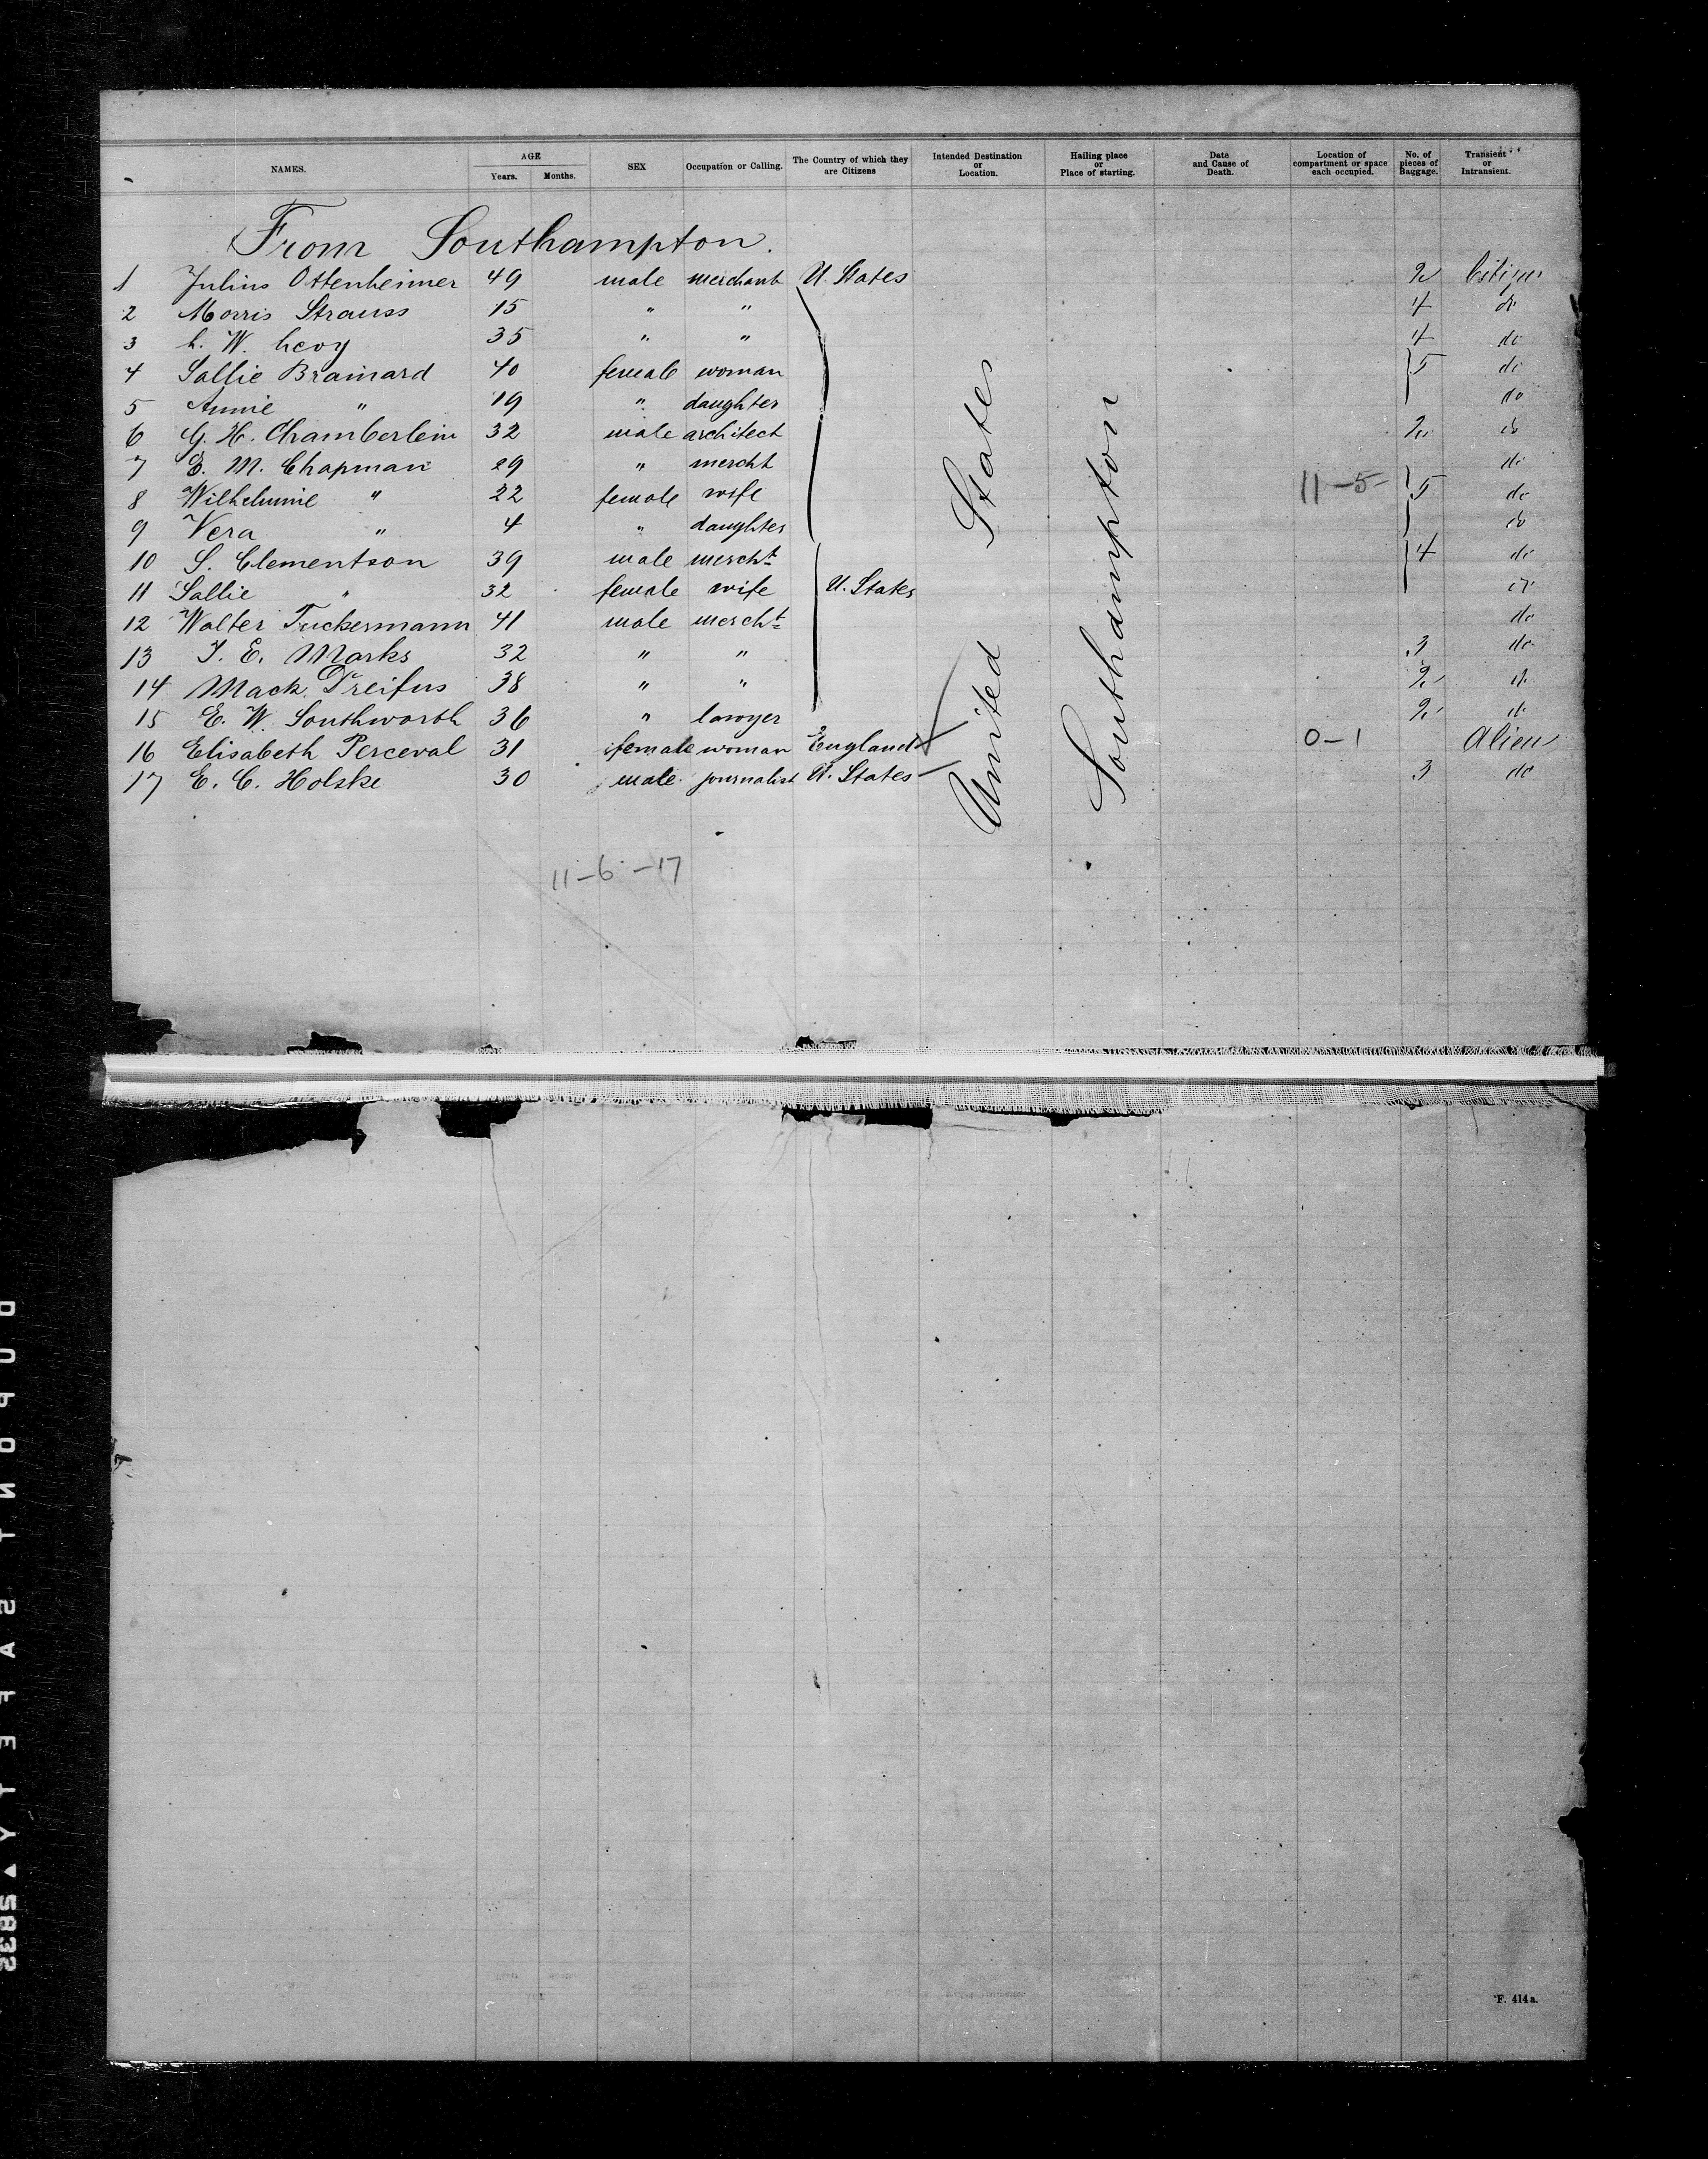 NAMES. AGE Years. Months. SEX Occupation or Calling. The Country of which they are Citizens Intended Destination or Location. Hailing place or Place of starting. Date and Cause of Death. Location of compartment or space each occupied. No. of pieces of Baggage. Transient or Intransient.
From Southampton.
1 Julius Ottenheimer 49 male merchant U. States 2 Citizen
2 Morris Strauss 15 " " 4 do
3 L. W. Levy 35 " " 4 do
4 Sallie Brainard 40 female woman 5 do
5 Annie " 19 " daughter do
6 G. H. Chamberlein 32 male architect 2 do
7 E. M. Chapman 29 " mercht do
8 Wilhelmine " 22 female wife 11-5 5 do
9 Vera " 4 " daughter do
10 S. Clementson 39 male mercht 4 do
11 Sallie " 32 female wife U. States do
12 Walter Tuckermann 41 male mercht do
13 J. E. Marks 32 " " 3 do
14 Mack Dreifus 38 " " 2 do
15 E. W. Southworth 36 " lawyer 2 do
16 Elisabeth Perceval 31 female woman England 0-1 Alien
17 E. C. Holske 30 male journalist U. States 3 do
United States
Southampton
11-6-17
F. 414a.
DUPONT SAFETY 5832